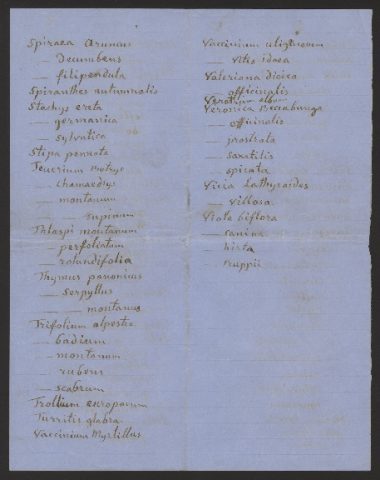 Spiraea Aruncus
— Decumbens
— filipendula
Spiranthes autumnalis
Stachys ereta
— germanica
— sylvatica
Stipa pennata
Teucrium Botrys
— chamaedrys
— montanum
— supinum
Thlaspi montanum
— perfoliatum
— rotundifolia
Thymus panonicus
— Serpyllus
— — montanus
Trifolium alpestre
— badium
— montanum
— rubens
— scabrum
Trollium europaeum
Turritis glabra
Vaccinium Myrtillus
Vaccinium uliginosum
— vitis idaea
Valeriana dioica
— officinalis
Veratrum album
Veronica Beccabunga
— officinalis
— prostrata
— saxatilis
— spicata
Vicia Lathyroides
— villosa
Viola biflora
— canina
— hirta
— Ruppii